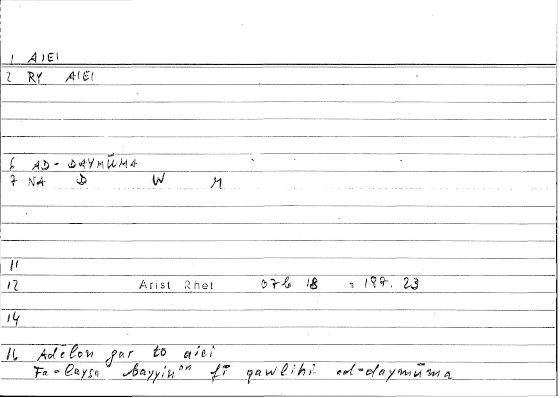 1 AIEI
2 RY AIEI
6 AD-DAYMŪMA
7 NA D W M
11
12 Arist Rhet 07b 18 = 187.23
14
16 Adēlon gar to aiei
Fa-laysa bayyinan fī qawlihi ad-daymūma